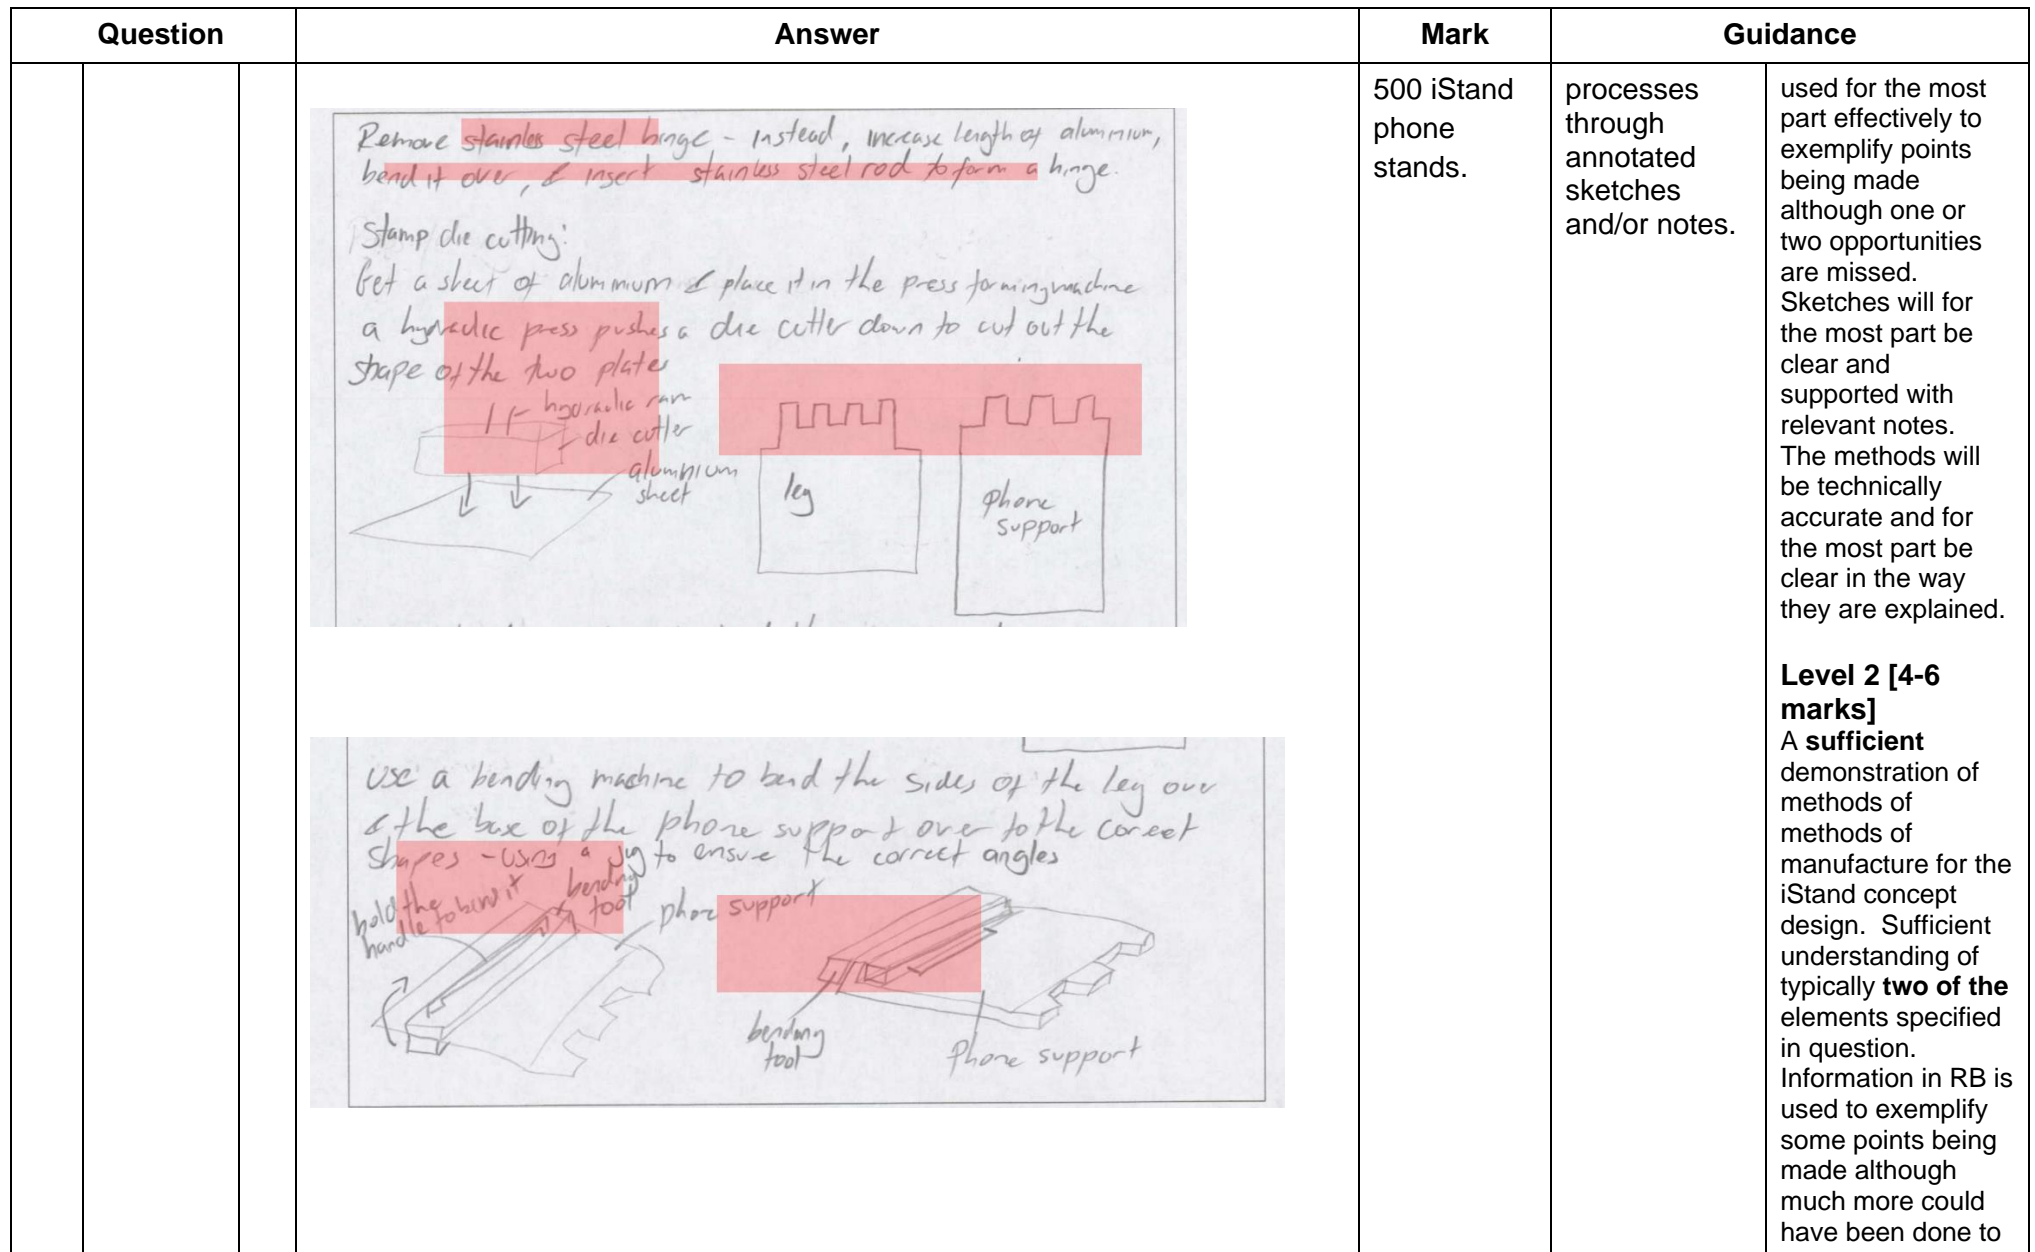 Question
Answer
Mark
Guidance
Remove stainless steel hinge - instead, increase length of aluminium,
bend it over, & insert stainless steel rod to form a hinge.
Stamp die cutting:
Get a sheet of aluminium & place it in the press forming machine
a hydraulic press pushes a die cutter down to cut out the
shape of the two plates
hydraulic ram
die cutter
aluminium
sheet
leg
phone
support
use a bending machine to bend the sides of the leg over
& the base of the phone support over to the correct
shapes - using a jig to ensure the correct angles
hold the
handle to bend it
bending
tool
phone support
bending
tool
Phone support
500 iStand
phone
stands.
processes
through
annotated
sketches
and/or notes.
used for the most
part effectively to
exemplify points
being made
although one or
two opportunities
are missed.
Sketches will for
the most part be
clear and
supported with
relevant notes.
The methods will
be technically
accurate and for
the most part be
clear in the way
they are explained.
Level 2 [4-6
marks]
A sufficient
demonstration of
methods of
methods of
manufacture for the
iStand concept
design.  Sufficient
understanding of
typically two of the
elements specified
in question.
Information in RB is
used to exemplify
some points being
made although
much more could
have been done to